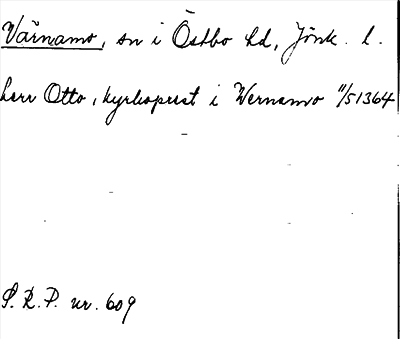 Värnamo, sn i Östbo hd, Jönk. l.
herr Otto, kyrkoprest i Wernamo 11/5 1364
S.R.P. nr. 609